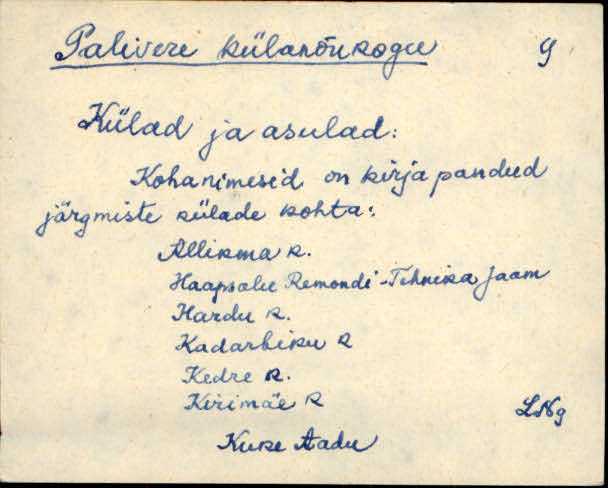 Palivere külanõukogu 9
Külad ja asulad:
Kohanimesid on kirja pandud
järgmiste külade kohta:
Allikma k.
Haapsalu Remondi-Tehnika Jaam
Hardu k.
Kadarbiku k
Kedre k.
Kirimäe k
LNg
Kuke Aadu